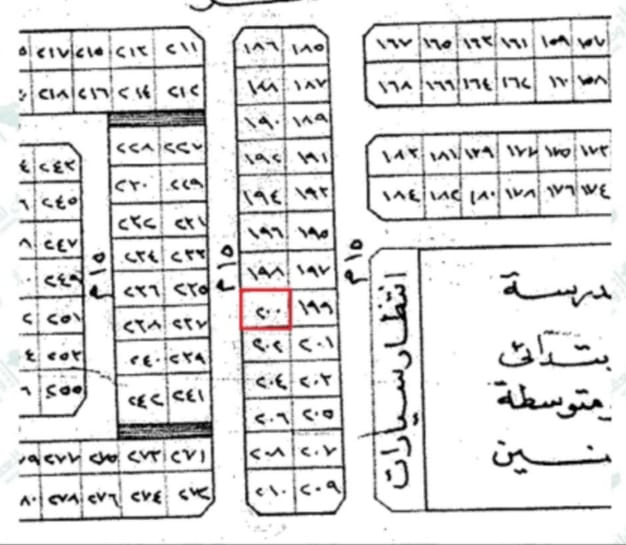 ١٥٧ ١٥٩ ١٦١ ١٦٣ ١٦٥ ١٦٧
١٥٨ ١٦٠ ١٦٢ ١٦٤ ١٦٦ ١٦٨
١٧٣ ١٧٥ ١٧٧ ١٧٩ ١٨١ ١٨٣
١٧٤ ١٧٦ ١٧٨ ١٨٠ ١٨٢ ١٨٤
انتظار سيارات
مدرسة
بتدائى
متوسطة
بنسين
١٥م
١٨٥ ١٨٦
١٨٧ ١٨٨
١٨٩ ١٩٠
١٩١ ١٩٢
١٩٣ ١٩٤
١٩٥ ١٩٦
١٩٧ ١٩٨
١٩٩ ٢٠٠
٢٠١ ٢٠٢
٢٠٣ ٢٠٤
٢٠٥ ٢٠٦
٢٠٧ ٢٠٨
٢٠٩ ٢١٠
١٥م
٢١١ ٢١٣ ٢١٥ ٢١٧
٢١٢ ٢١٤ ٢١٦ ٢١٨
٢٢٧ ٢٢٨
٢٢٩ ٢٣٠
٢٣١ ٢٣٢
٢٣٣ ٢٣٤
٢٣٥ ٢٣٦
٢٣٧ ٢٣٨
٢٣٩ ٢٤٠
٢٤١ ٢٤٢
١٥م
٢٤٣
٢٤٥
٢٤٧
٢٤٩
٢٥١
٢٥٣
٢٥٥
٢٧١ ٢٧٣ ٢٧٥ ٢٧٧
٢٧٢ ٢٧٤ ٢٧٦ ٢٧٨